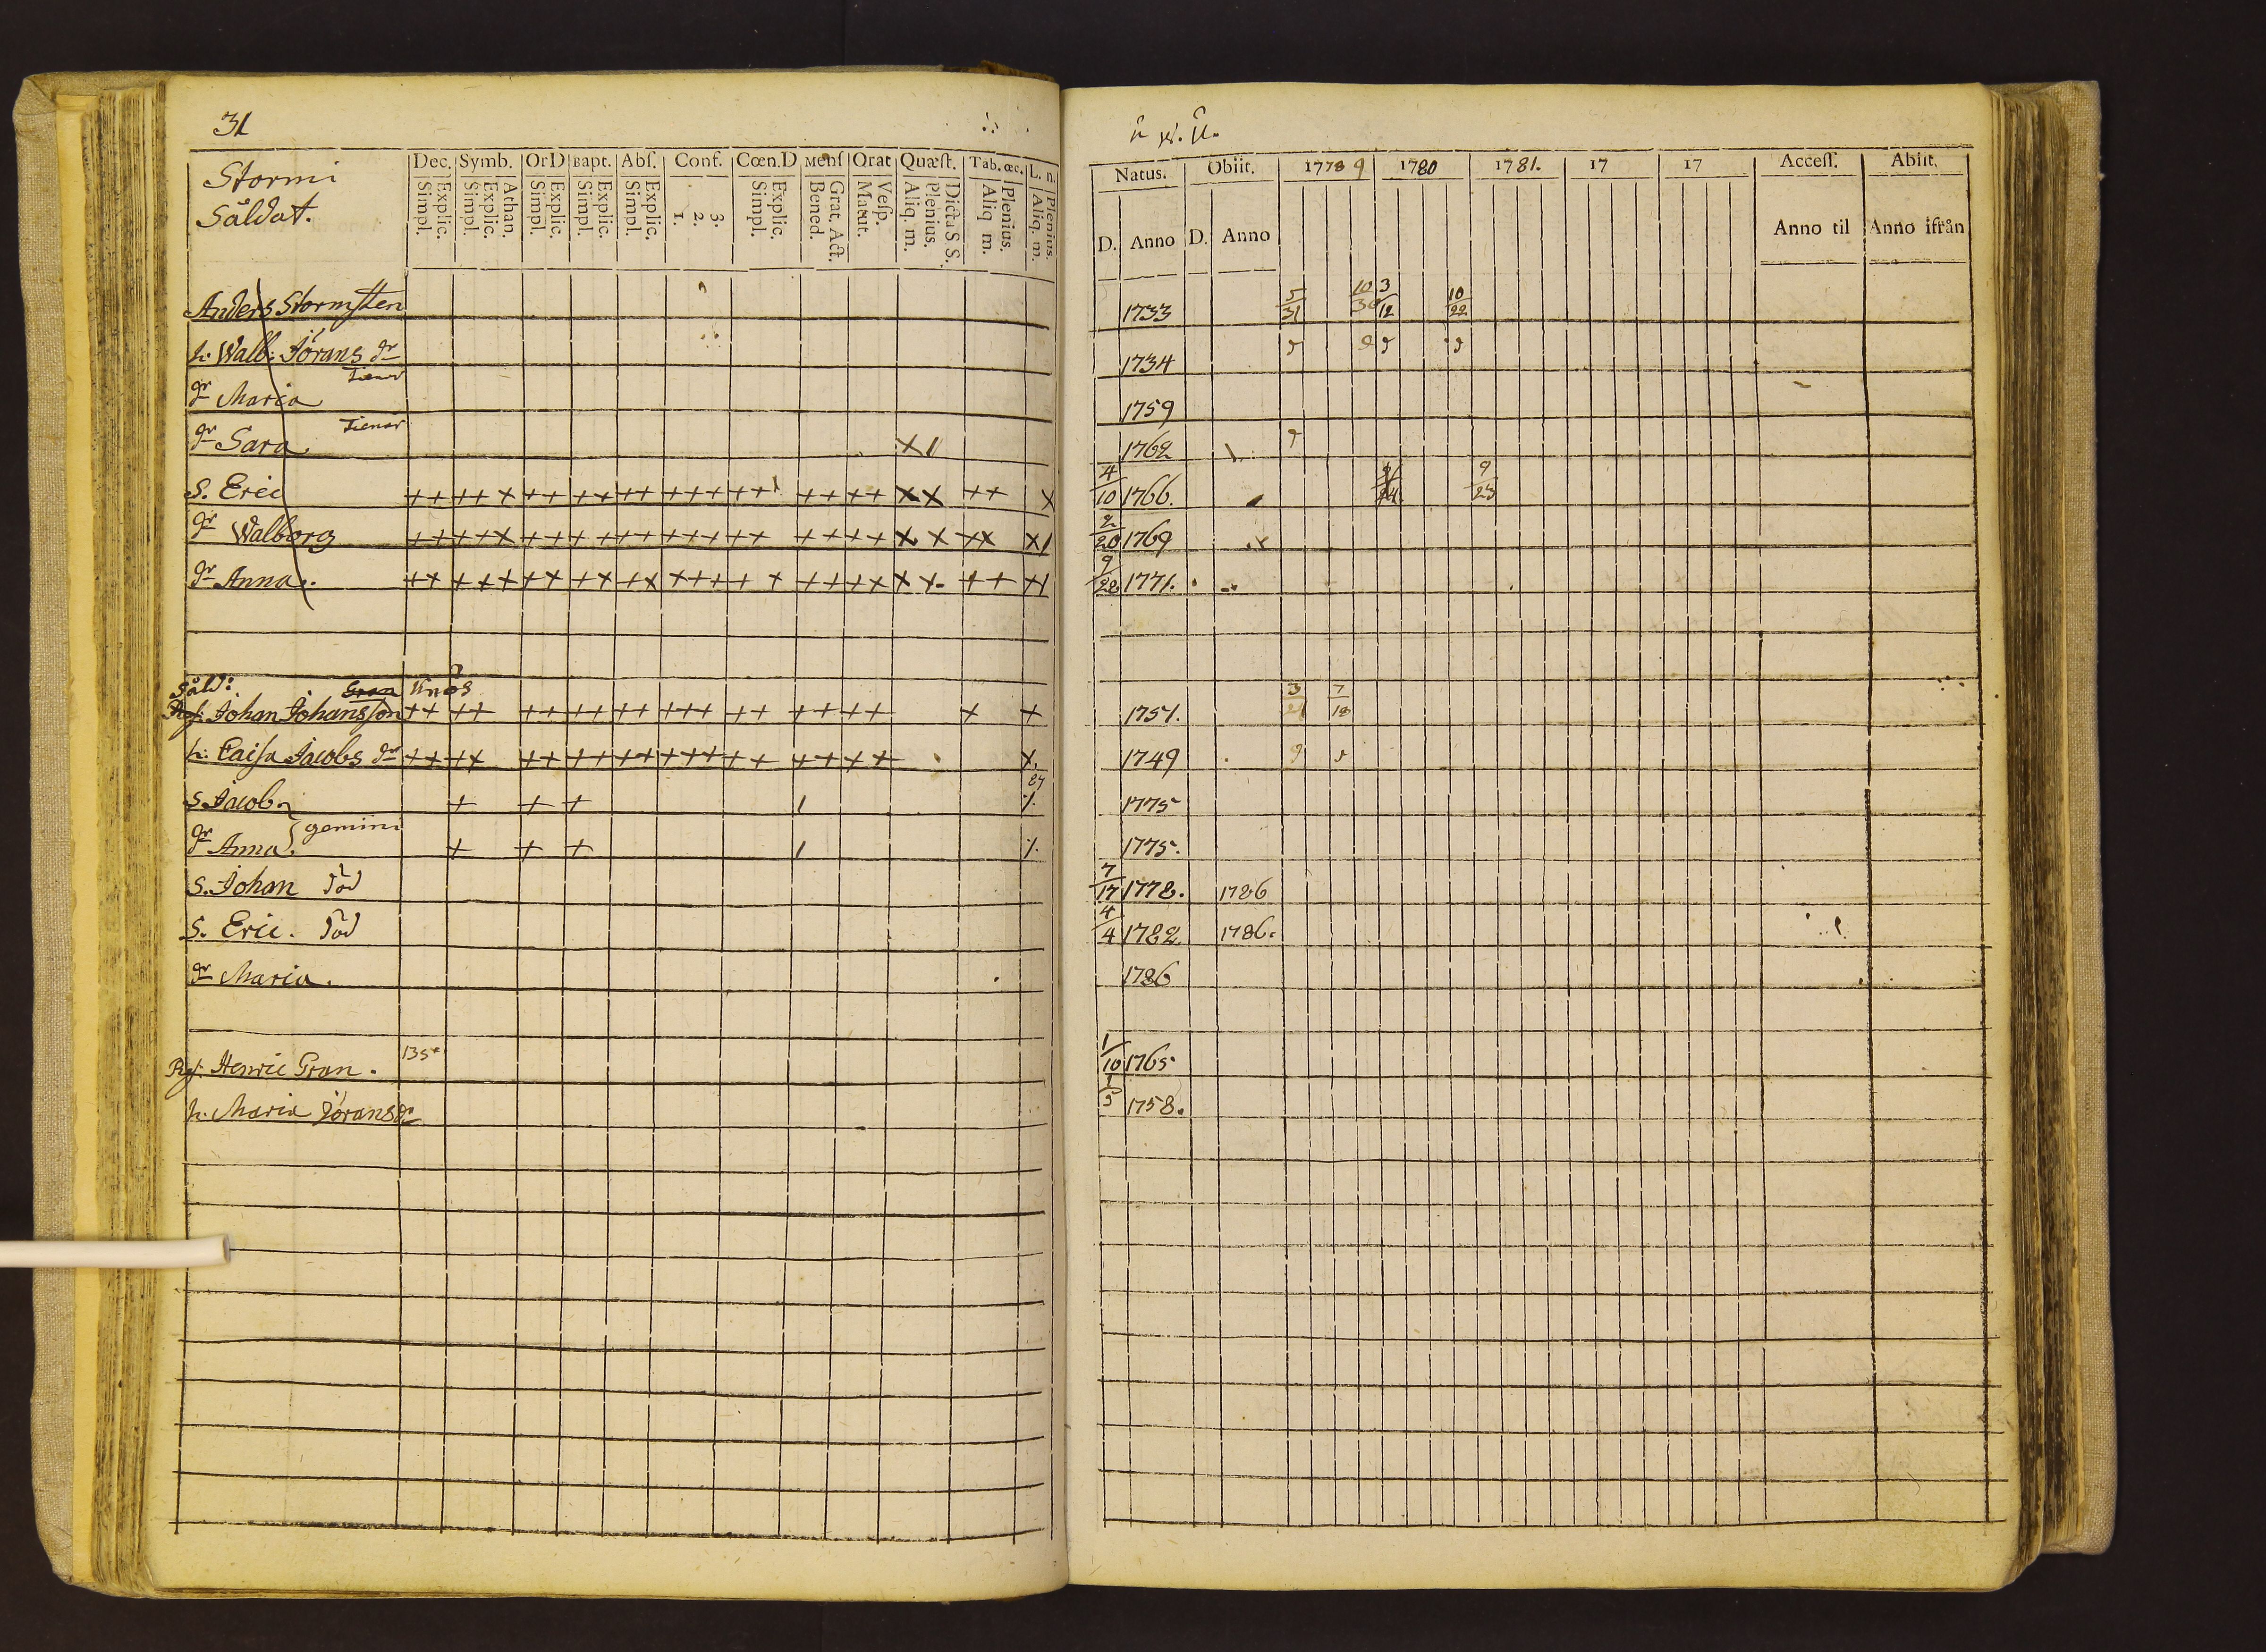 31
Stormi
Såldat.
Dec. Symb. OrD Bapt. Abſ. Conf. Cœn.D Menſ Orat Quæſt. Tab. œc. L. n.
Simpl. Explic. Simpl. Explic. Athan. Simpl. Explic. Simpl. Explic. Simpl. Explic. 1. 2. 3. Simpl. Explic. Bened. Grat. Act. Matut. Veſp. Aliq. m. Plenius. Dicta S S. Aliq m. Plenius. Aliq. m. Plenius.
Natus. Obiit. 1778 9 1780 1781. 17 17 Acceſſ. Abiit.
D. Anno D. Anno Anno til Anno ifrån
Anders Stormsten 1733 5/31 10/30 3/12 10/22
h. Walb: Jörans dr 1734
Tienar
dr Maria 1759
Tienar
dr Sara 1762
S. Eric 4/10 1766. 9/23
dr Walborg 2/20 1769
dr Anna. 9/28 1771.
Såld: Gran
Johan Johansson 1751. 3/21 7/18
h: Caisa Jacobs dr 1749
S. Jacob 1775
gemini
dr Anna. 1775.
S. Johan död 7/17 1778. 1786
S. Eric. död 4/4 1782 1786.
dr Maria. 1786
135
Henric Gran. 1/10 1765
h. Maria Jöransdr 1/5 1758.